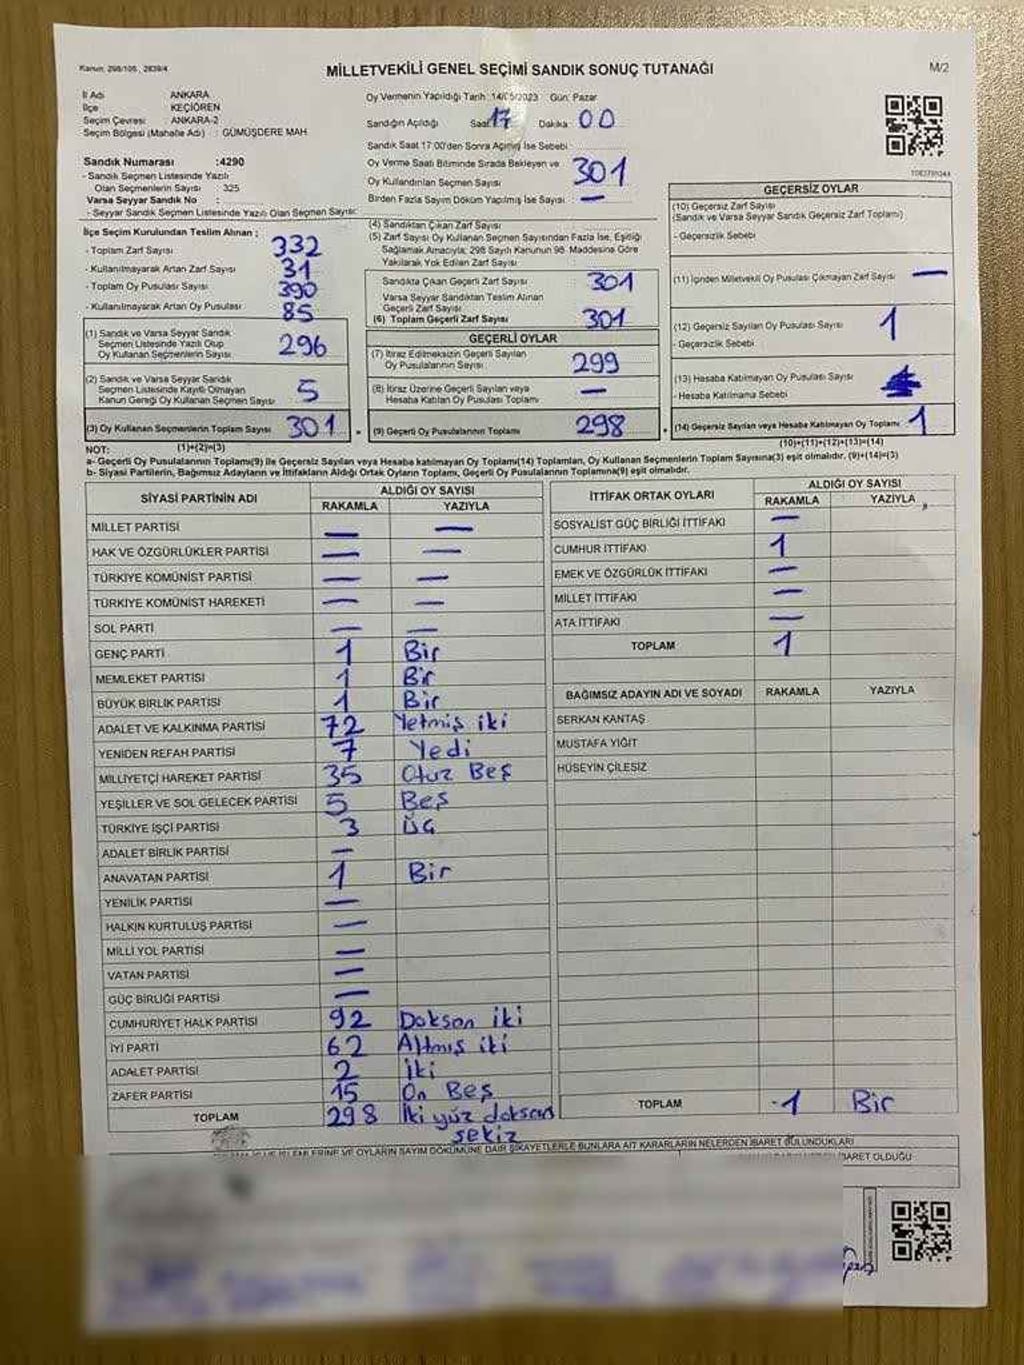 Kanun: 298/105 , 2839/4
MİLLETVEKİLİ GENEL SEÇİMİ SANDIK SONUÇ TUTANAĞI
M/2
İl Adı ANKARA
İlçe KEÇİÖREN
Seçim Çevresi ANKARA-2
Seçim Bölgesi (Mahalle Adı) : GÜMÜŞDERE MAH.
Sandık Numarası :4290
- Sandık Seçmen Listesinde Yazılı
Olan Seçmenlerin Sayısı 325
Varsa Seyyar Sandık No :
- Seyyar Sandık Seçmen Listesinde Yazılı Olan Seçmen Sayısı:
Oy Vermenin Yapıldığı Tarih :14/05/2023 Gün: Pazar
Sandığın Açıldığı Saat: 17 Dakika: 00
Sandık Saat 17:00'den Sonra Açılmış İse Sebebi :
Oy Verme Saati Bitiminde Sırada Bekleyen ve
Oy Kullandırılan Seçmen Sayısı 301
Birden Fazla Sayım Döküm Yapılmış İse Sayısı : —
İlçe Seçim Kurulundan Teslim Alınan :
- Toplam Zarf Sayısı 332
- Kullanılmayarak Artan Zarf Sayısı 31
- Toplam Oy Pusulası Sayısı 390
- Kullanılmayarak Artan Oy Pusulası 85
(1) Sandık ve Varsa Seyyar Sandık
Seçmen Listesinde Yazılı Olup
Oy Kullanan Seçmenlerin Sayısı 296
(2) Sandık ve Varsa Seyyar Sandık
Seçmen Listesinde Kayıtlı Olmayan
Kanun Gereği Oy Kullanan Seçmen Sayısı 5
(3) Oy Kullanan Seçmenlerin Toplam Sayısı 301
(1)+(2)=(3)
(4) Sandıktan Çıkan Zarf Sayısı
(5) Zarf Sayısı Oy Kullanan Seçmen Sayısından Fazla İse, Eşitliği
Sağlamak Amacıyla; 298 Sayılı Kanunun 98. Maddesine Göre
Yakılarak Yok Edilen Zarf Sayısı
Sandıkta Çıkan Geçerli Zarf Sayısı 301
Varsa Seyyar Sandıktan Teslim Alınan
Geçerli Zarf Sayısı
(6) Toplam Geçerli Zarf Sayısı 301
GEÇERLİ OYLAR
(7) İtiraz Edilmeksizin Geçerli Sayılan
Oy Pusulalarının Sayısı 299
(8) İtiraz Üzerine Geçerli Sayılan veya
Hesaba Katılan Oy Pusulası Toplamı —
(9) Geçerli Oy Pusulalarının Toplamı 298
GEÇERSİZ OYLAR
(10) Geçersiz Zarf Sayısı
(Sandık ve Varsa Seyyar Sandık Geçersiz Zarf Toplamı)
- Geçersizlik Sebebi
(11) İçinden Milletvekili Oy Pusulası Çıkmayan Zarf Sayısı —
(12) Geçersiz Sayılan Oy Pusulası Sayısı 1
- Geçersizlik Sebebi
(13) Hesaba Katılmayan Oy Pusulası Sayısı
- Hesaba Katılmama Sebebi
(14) Geçersiz Sayılan veya Hesaba Katılmayan Oy Toplamı 1
(10)+(11)+(12)+(13)=(14)
NOT:
a- Geçerli Oy Pusulalarının Toplamı(9) ile Geçersiz Sayılan veya Hesaba katılmayan Oy Toplamı(14) Toplamları, Oy Kullanan Seçmenlerin Toplam Sayısına(3) eşit olmalıdır. (9)+(14)=(3)
b- Siyasi Partilerin, Bağımsız Adayların ve İttifakların Aldığı Oyların Toplamı, Geçerli Oy Pusulalarının Toplamına(9) eşit olmalıdır.
SİYASİ PARTİNİN ADI ALDIĞI OY SAYISI
RAKAMLA YAZIYLA
MİLLET PARTİSİ — —
HAK VE ÖZGÜRLÜKLER PARTİSİ — —
TÜRKİYE KOMÜNİST PARTİSİ — —
TÜRKİYE KOMÜNİST HAREKETİ — —
SOL PARTİ — —
GENÇ PARTİ 1 Bir
MEMLEKET PARTİSİ 1 Bir
BÜYÜK BİRLİK PARTİSİ 1 Bir
ADALET VE KALKINMA PARTİSİ 72 Yetmiş iki
YENİDEN REFAH PARTİSİ 7 Yedi
MİLLİYETÇİ HAREKET PARTİSİ 35 Otuz Beş
YEŞİLLER VE SOL GELECEK PARTİSİ 5 Beş
TÜRKİYE İŞÇİ PARTİSİ 3 Üç
ADALET BİRLİK PARTİSİ —
ANAVATAN PARTİSİ 1 Bir
YENİLİK PARTİSİ —
HALKIN KURTULUŞ PARTİSİ —
MİLLİ YOL PARTİSİ —
VATAN PARTİSİ —
GÜÇ BİRLİĞİ PARTİSİ —
CUMHURİYET HALK PARTİSİ 92 Doksan iki
İYİ PARTİ 62 Altmış iki
ADALET PARTİSİ 2 İki
ZAFER PARTİSİ 15 On Beş
TOPLAM 298 İki yüz doksan
sekiz
İTTİFAK ORTAK OYLARI ALDIĞI OY SAYISI
RAKAMLA YAZIYLA
SOSYALİST GÜÇ BİRLİĞİ İTTİFAKI —
CUMHUR İTTİFAKI 1
EMEK VE ÖZGÜRLÜK İTTİFAKI —
MİLLET İTTİFAKI —
ATA İTTİFAKI —
TOPLAM 1
BAĞIMSIZ ADAYIN ADI VE SOYADI RAKAMLA YAZIYLA
SERKAN KANTAŞ
MUSTAFA YİĞİT
HÜSEYİN ÇİLESİZ
TOPLAM -1 Bir
OYLARIN SAYIM DÖKÜMÜNE DAİR ŞİKAYETLERLE BUNLARA AİT KARARLARIN NELERDEN İBARET BULUNDUKLARI
İBARET OLDUĞU